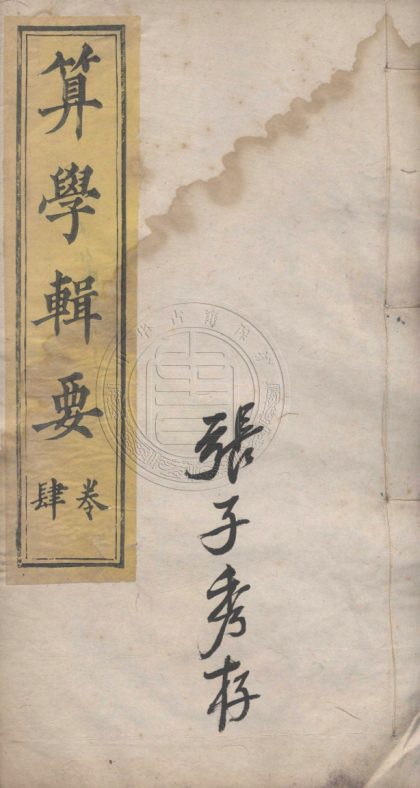 算學輯要
卷肆
張子秀存